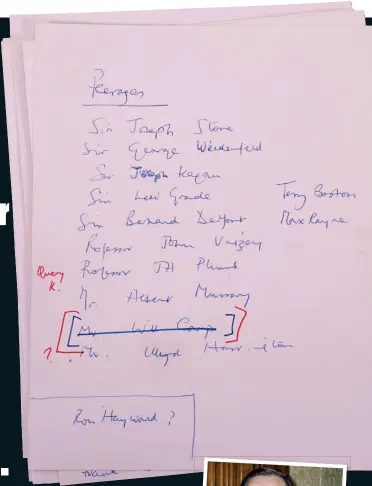 Peerages
Sir Joseph Stone
Sir George Weidenfeld
Sir Joseph Kagan
Sir Lew Grade Terry Boston
Sir Bernard Delfont Max Rayne
Professor John Vaizey
Query K. Professor JH Plumb
Mr. Albert Murray
[Mr. Will Camp]
? Mr. Lloyd
Ron Hayward?